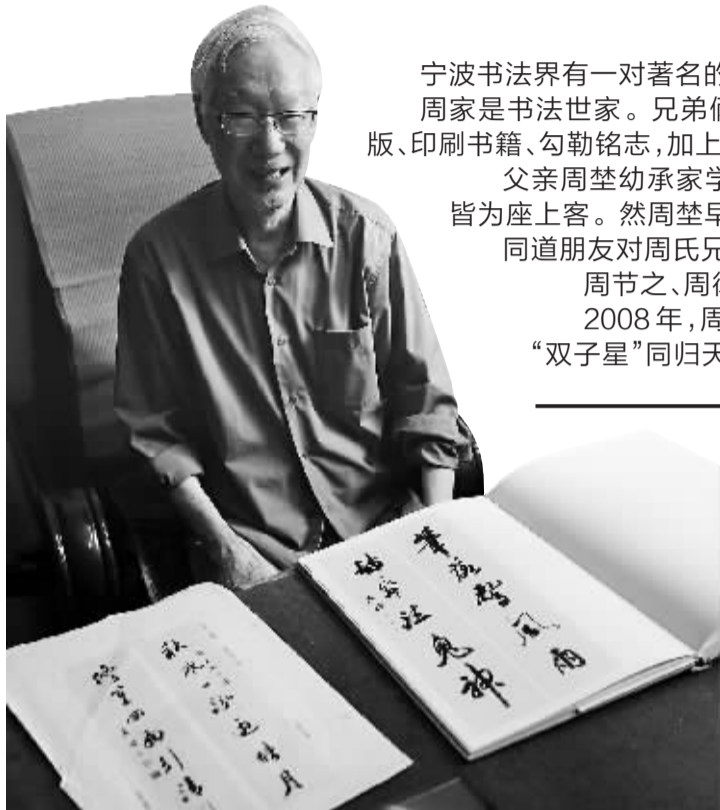 宁波书法界有一对著名的
周家是书法世家。兄弟俩
版、印刷书籍、勾勒铭志,加上
父亲周埜幼承家学
皆为座上客。然周埜早
同道朋友对周氏兄
周节之、周
2008年,周
“双子星”同归天
笔落惊风雨
法鬼神
秋水
月